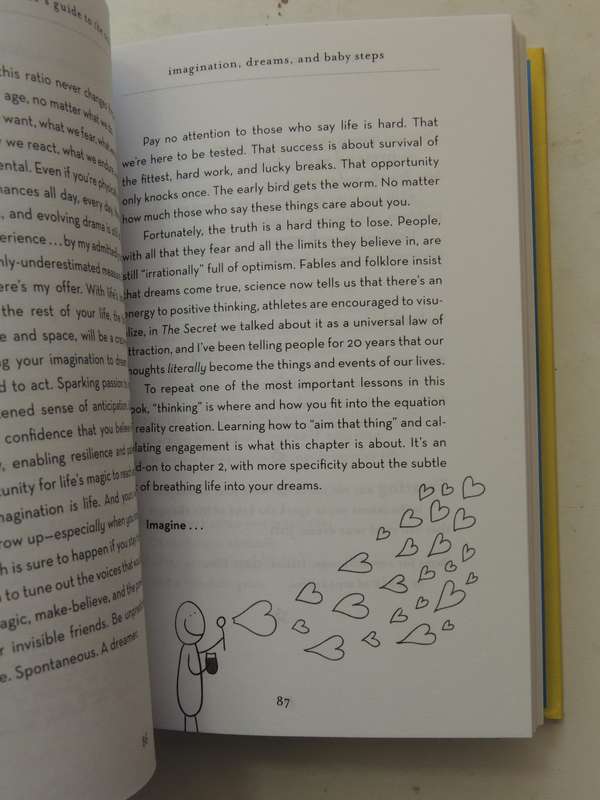 's guide to the
this ratio never changes
age, no matter what we do,
want, what we fear, what
we react, what we endure
ental. Even if you're physic
hances all day, every day.
, and evolving drama is still
erience ... by my admittedly
nly-underestimated measure
ere's my offer. With life's
the rest of your life, the
e and space, will be a
ng your imagination to
d to act. Sparking passion
ened sense of anticipation.
confidence that you believe
y, enabling resilience and
tunity for life's magic to
magination is life. And your
row up—especially when you
h is sure to happen if you
n to tune out the voices that
agic, make-believe, and the
r invisible friends. Be
e. Spontaneous. A dreamer.
imagination, dreams, and baby steps
Pay no attention to those who say life is hard. That
we're here to be tested. That success is about survival of
the fittest, hard work, and lucky breaks. That opportunity
only knocks once. The early bird gets the worm. No matter
how much those who say these things care about you.
Fortunately, the truth is a hard thing to lose. People,
with all that they fear and all the limits they believe in, are
still "irrationally" full of optimism. Fables and folklore insist
that dreams come true, science now tells us that there's an
energy to positive thinking, athletes are encouraged to visu-
alize, in The Secret we talked about it as a universal law of
attraction, and I've been telling people for 20 years that our
thoughts literally become the things and events of our lives.
To repeat one of the most important lessons in this
ook, "thinking" is where and how you fit into the equation
reality creation. Learning how to "aim that thing" and cal-
lating engagement is what this chapter is about. It's an
d-on to chapter 2, with more specificity about the subtle
of breathing life into your dreams.
Imagine . . .
87